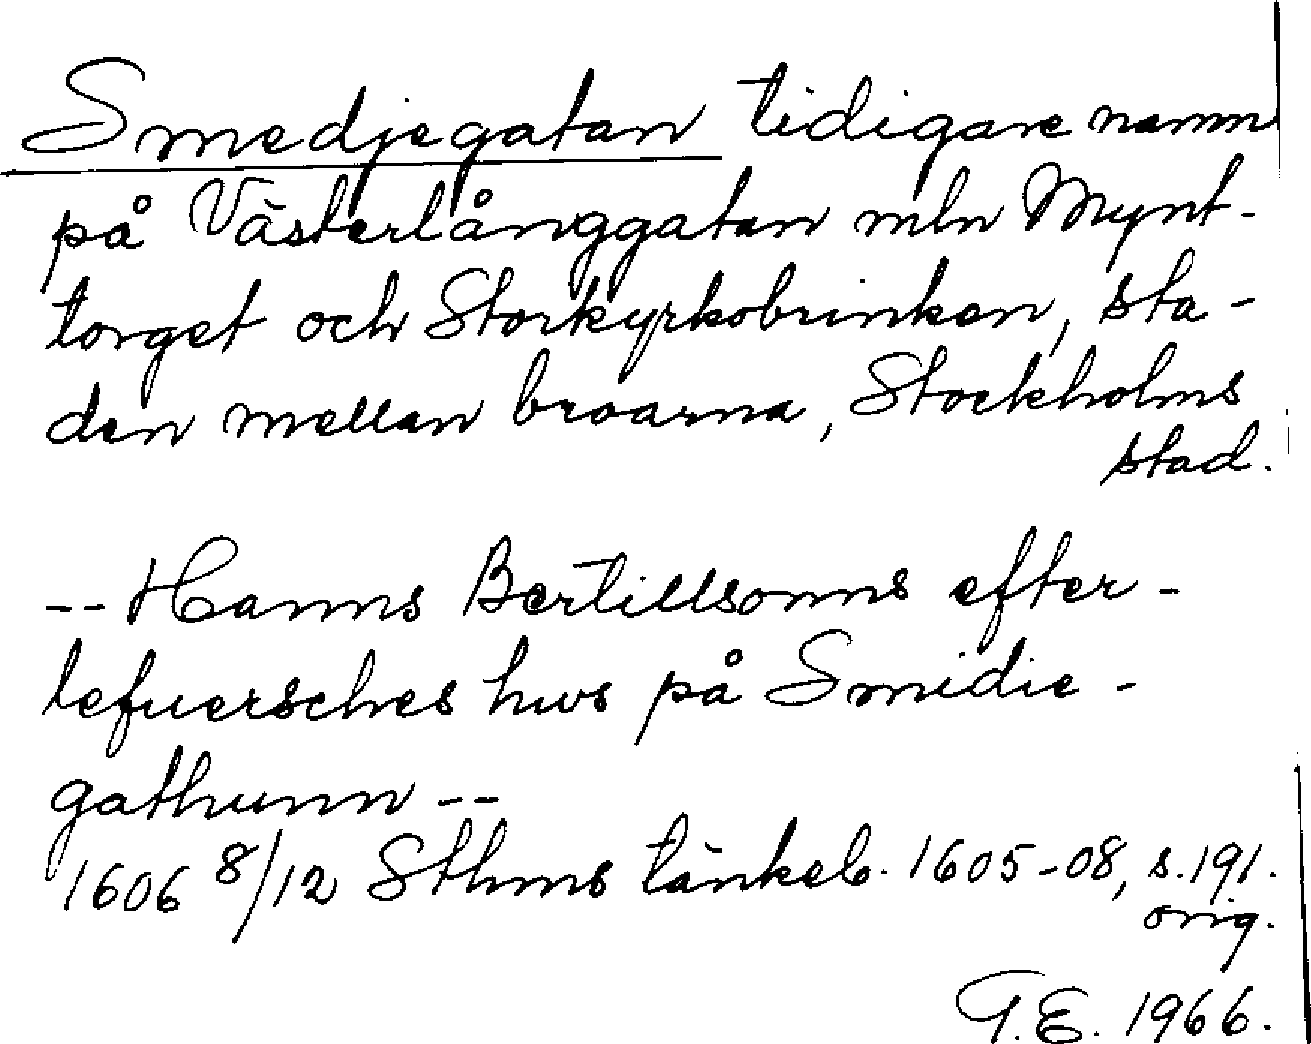 Smedjegatan tidigare namn
på Västerlånggatan mln Mynt-
torget och Storkyrkobrinken, sta-
den mellan broarna, Stockholms
stad.
-- Hanns Bertillsonns efter-
lefuersches hws på Smidie-
gathunn --
1606 8/12 Sthms tänkeb. 1605-08, s. 191.
orig.
G.E. 1966.